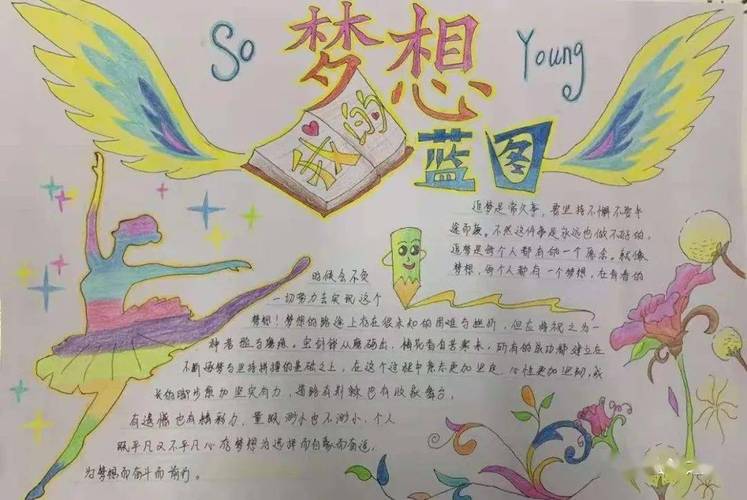 So
Young
梦想
我的
蓝图
追梦是常久事，要坚持不懈不要半
途而废。不然这件事是永远也做不好的。
追梦是每个人都有的一个愿念。就像
梦想，每个人都有一个梦想，在有着的
时候会不
一切努力去实现这个
梦想！梦想的路途上存在很未知的困难与挫折，但应将视之为一
种考验与磨练。宝剑锋从磨砺出，梅花香自苦寒来，所有的成功都建立在
不断追梦与坚持拼搏的基础之上，在这个过程中意志更加坚定 心性更加坚韧，成
长的脚步愈加坚实有力，道路有荆棘也有收获舞台，
有遗憾也有精彩力，量既渺小也不渺小，个人
既平凡又不平凡心存梦想为选择而自豪而奋进，
为梦想而奋斗而前行。